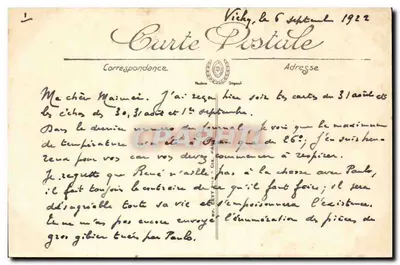 1
Vichy, le 6 septembre 1922
Carte Postale
Correspondance
Adresse
Ma chère Maimei. J'ai reçu hier soir tes cartes du 31 août et
les échos des 30, 31 août et 1er septembre.
Dans le dernier journal je vois que le maximum
de température que de 26°; j'en suis heu-
reux pour vos car vous devez commencer à respirer.
Je regrette que René n'aille pas à la chasse avec Paulo,
il fait toujours le contraire de ce qu'il faut faire; il sera
désagréable toute sa vie et s'empoisonnera l'existence.
Tu ne m'as pas encore envoyé l'énumération des pièces de
gros gibier tuées par Paulo.